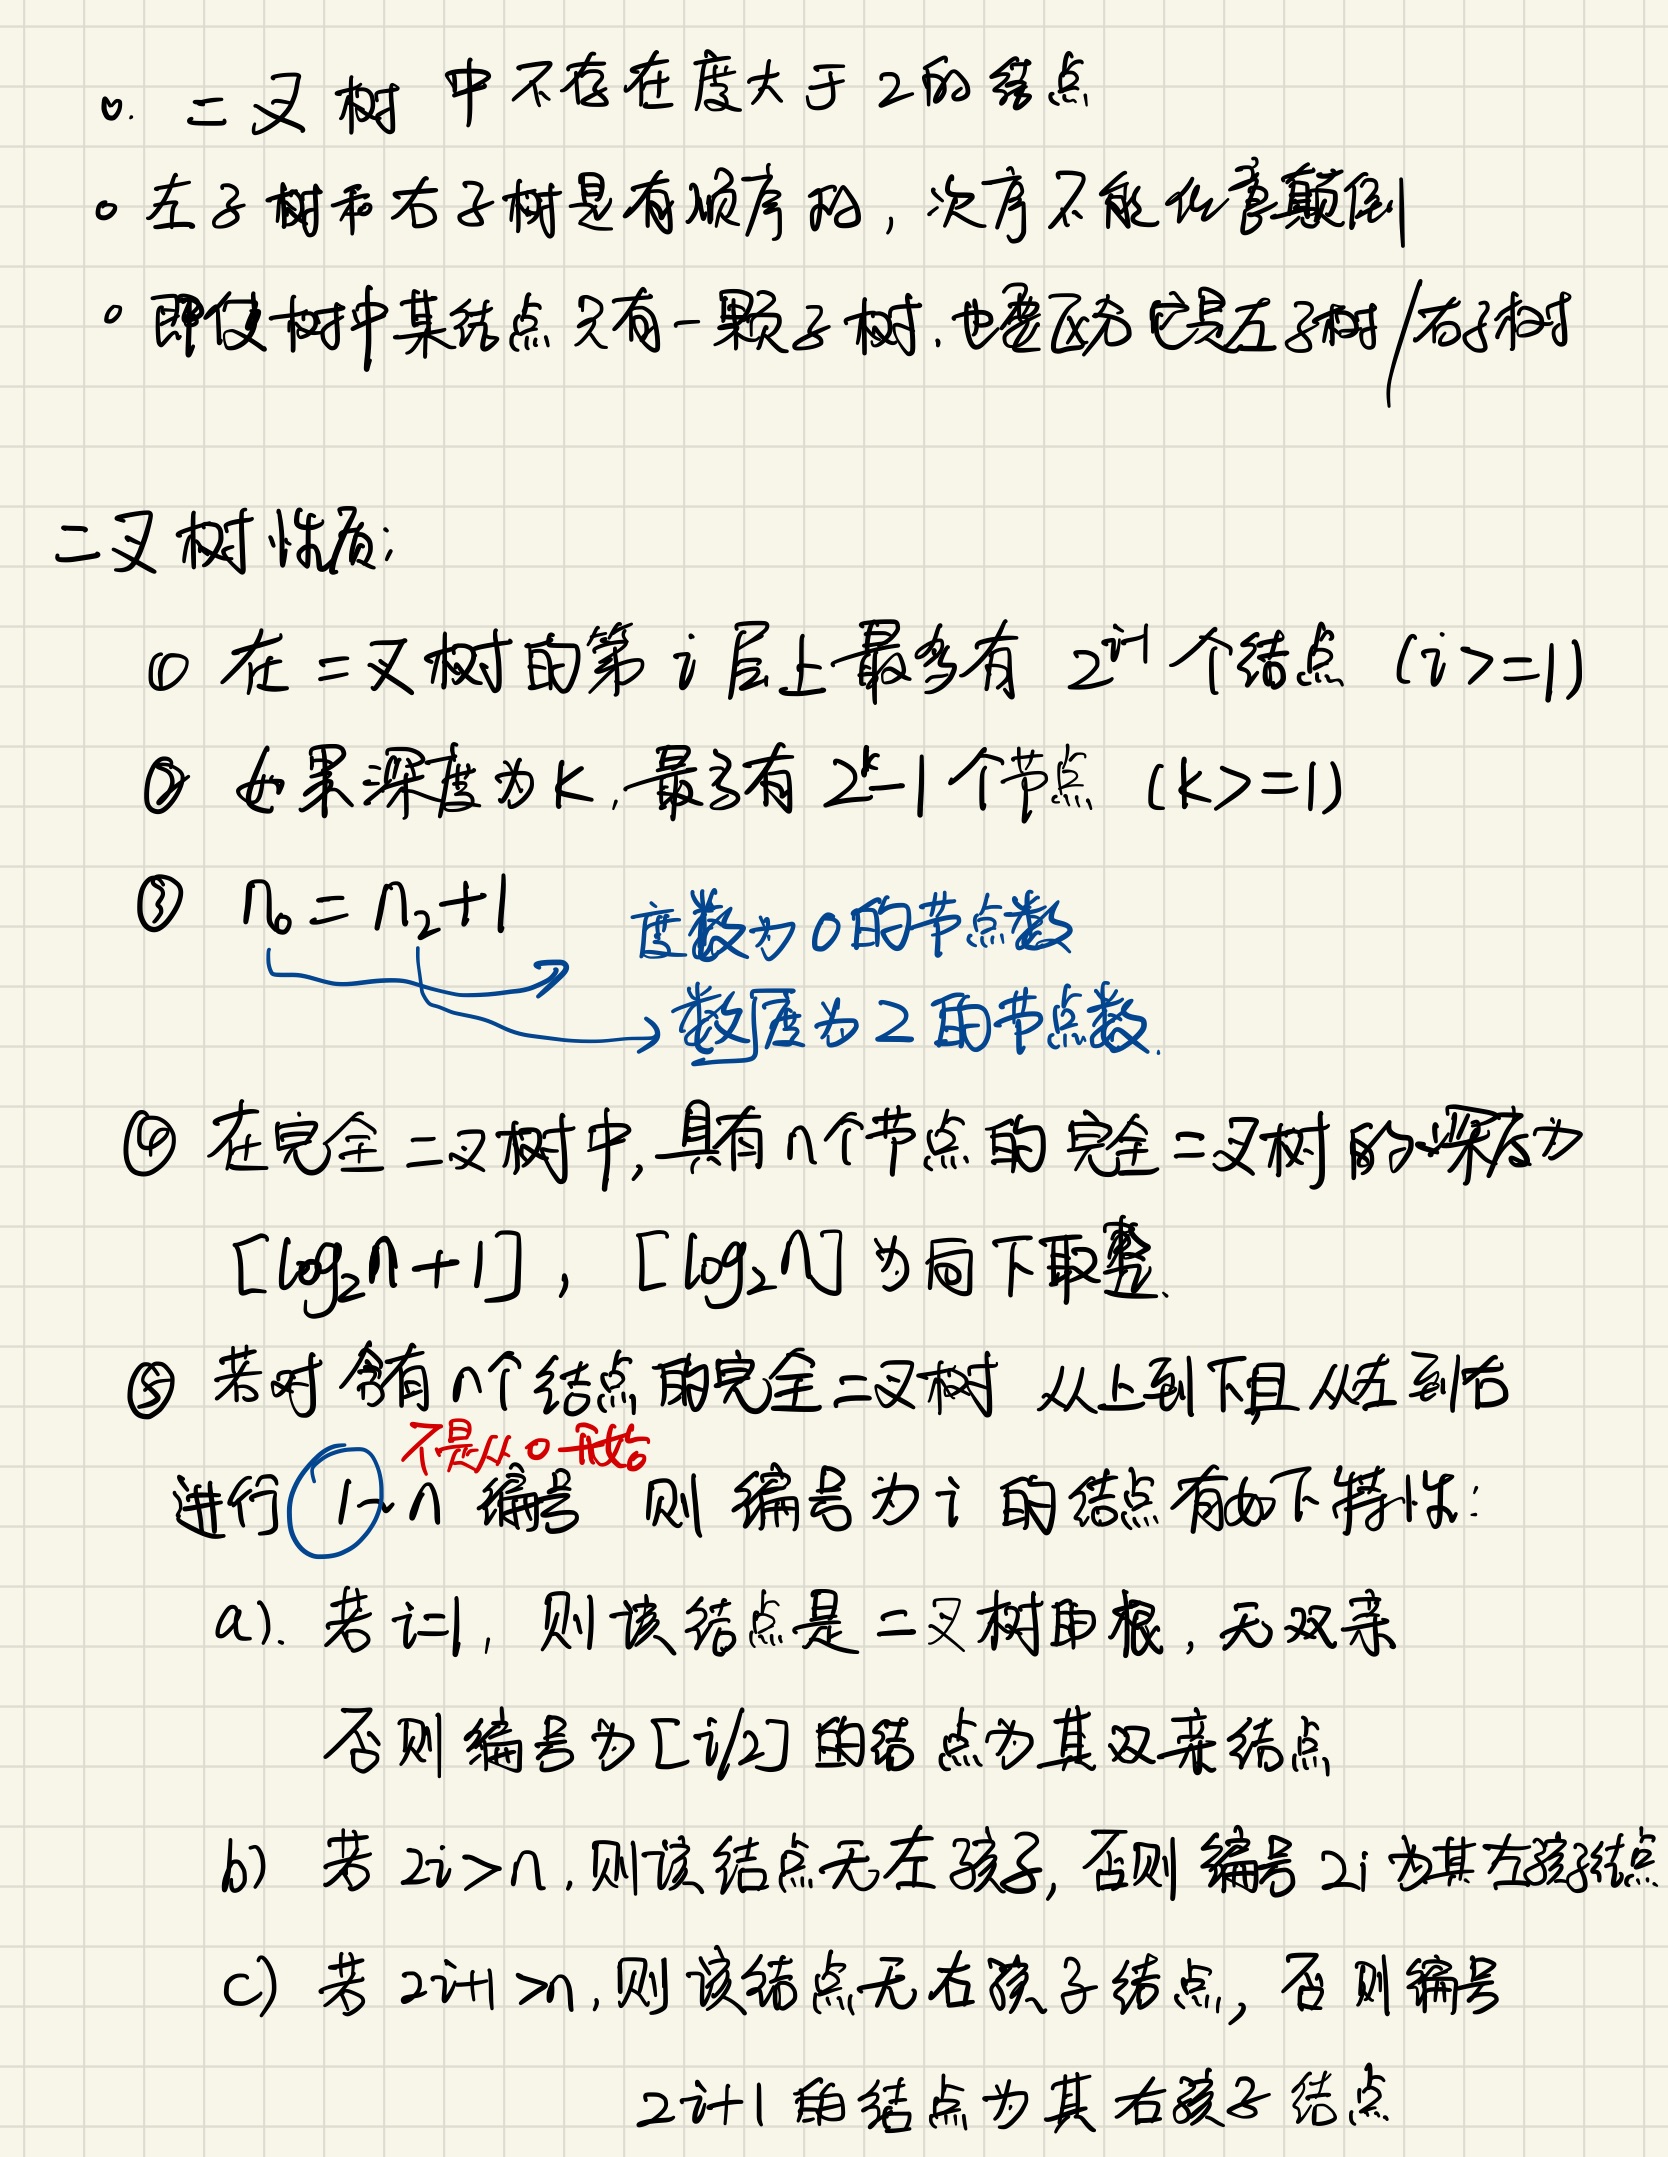 。二叉树中不存在度大于2的结点
。左子树和右子树是有顺序的，次序不能任意颠倒
。即使树中某结点只有一颗子树，也要区分它是左子树/右子树
二叉树性质：
① 在二叉树的第i层上最多有 2^{i-1} 个结点 (i>=1)
② 如果深度为K，最多有 2^k-1 个节点 (k>=1)
③ n₀ = n₂+1
度数为0的节点数
数度为2的节点数.
④ 在完全二叉树中，具有n个节点的完全二叉树的深度为
[log₂n+1]，[log₂n]为向下取整.
⑤ 若对含有n个结点的完全二叉树 从上到下且从左到右
不是从0开始
进行 1~n 编号 则编号为i的结点有如下特性：
a). 若i=1，则该结点是二叉树的根，无双亲
否则编号为[i/2]的结点为其双亲结点
b) 若2i>n，则该结点无左孩子，否则编号2i为其左孩子结点
c) 若2i+1>n，则该结点无右孩子结点，否则编号
2i+1的结点为其右孩子结点